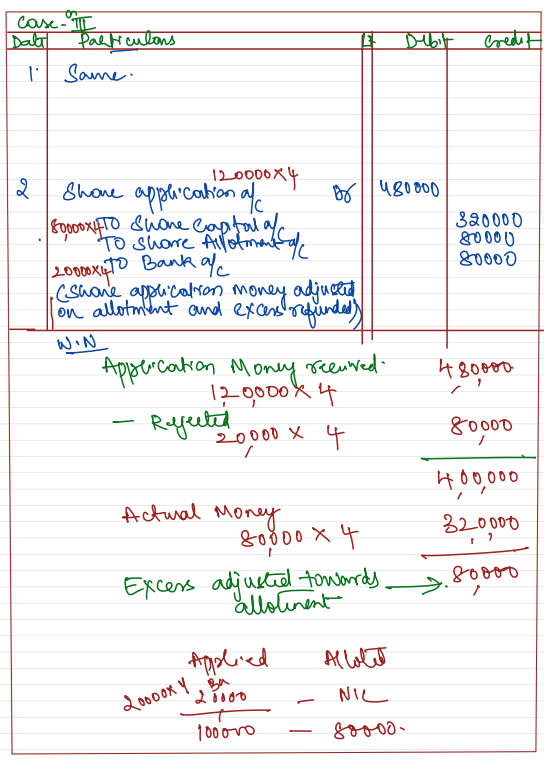 Case - III
Date Particulars LF Debit Credit
1. Same.
120000 X 4
2 Share application a/c Dr 480000
80,000x4 TO Share Capital a/c 320000
TO Share Allotment a/c 80000
20000x4 TO Bank a/c 80000
(Share application money adjusted
on allotment and excess refunded)
W.N
Application Money received. 480,000
1,20,000 X 4
— Rejected 80,000
20,000 X 4
4,00,000
Actual Money 320,000
80,000 X 4
Excess adjusted towards → 80,000
allotment
Applied Alloted
20000 X 4 20000 — NIL
100000 — 80000.